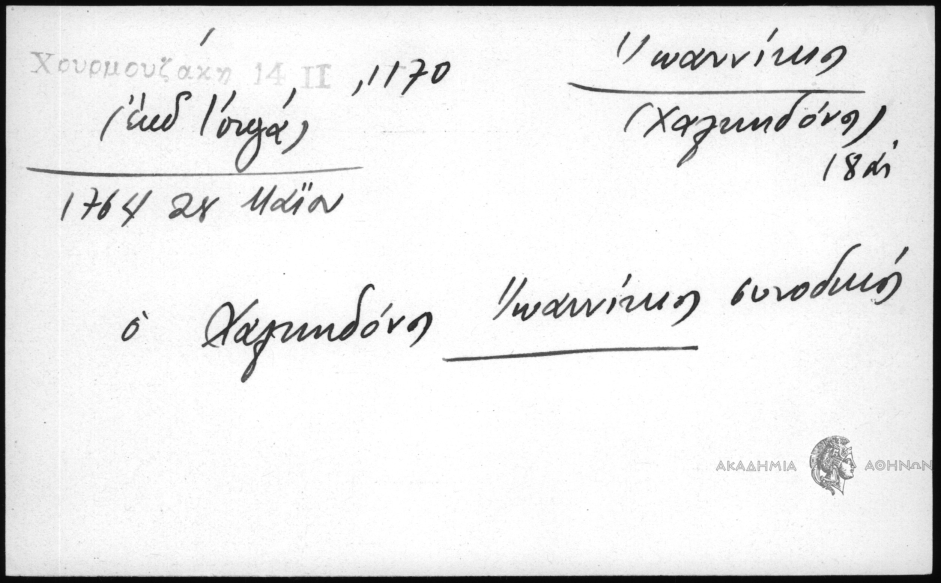 Χουρμουζάκη 14 II, 1170
(ἐκδ Ἰόργά)
1764 28 Μαΐου
Ἰωαννίκιος
(Χαλκηδόνος)
18 αἰ
ὁ Χαλκηδόνος Ἰωαννίκιος συνοδικός
ΑΚΑΔΗΜΙΑ ΑΘΗΝΩΝ